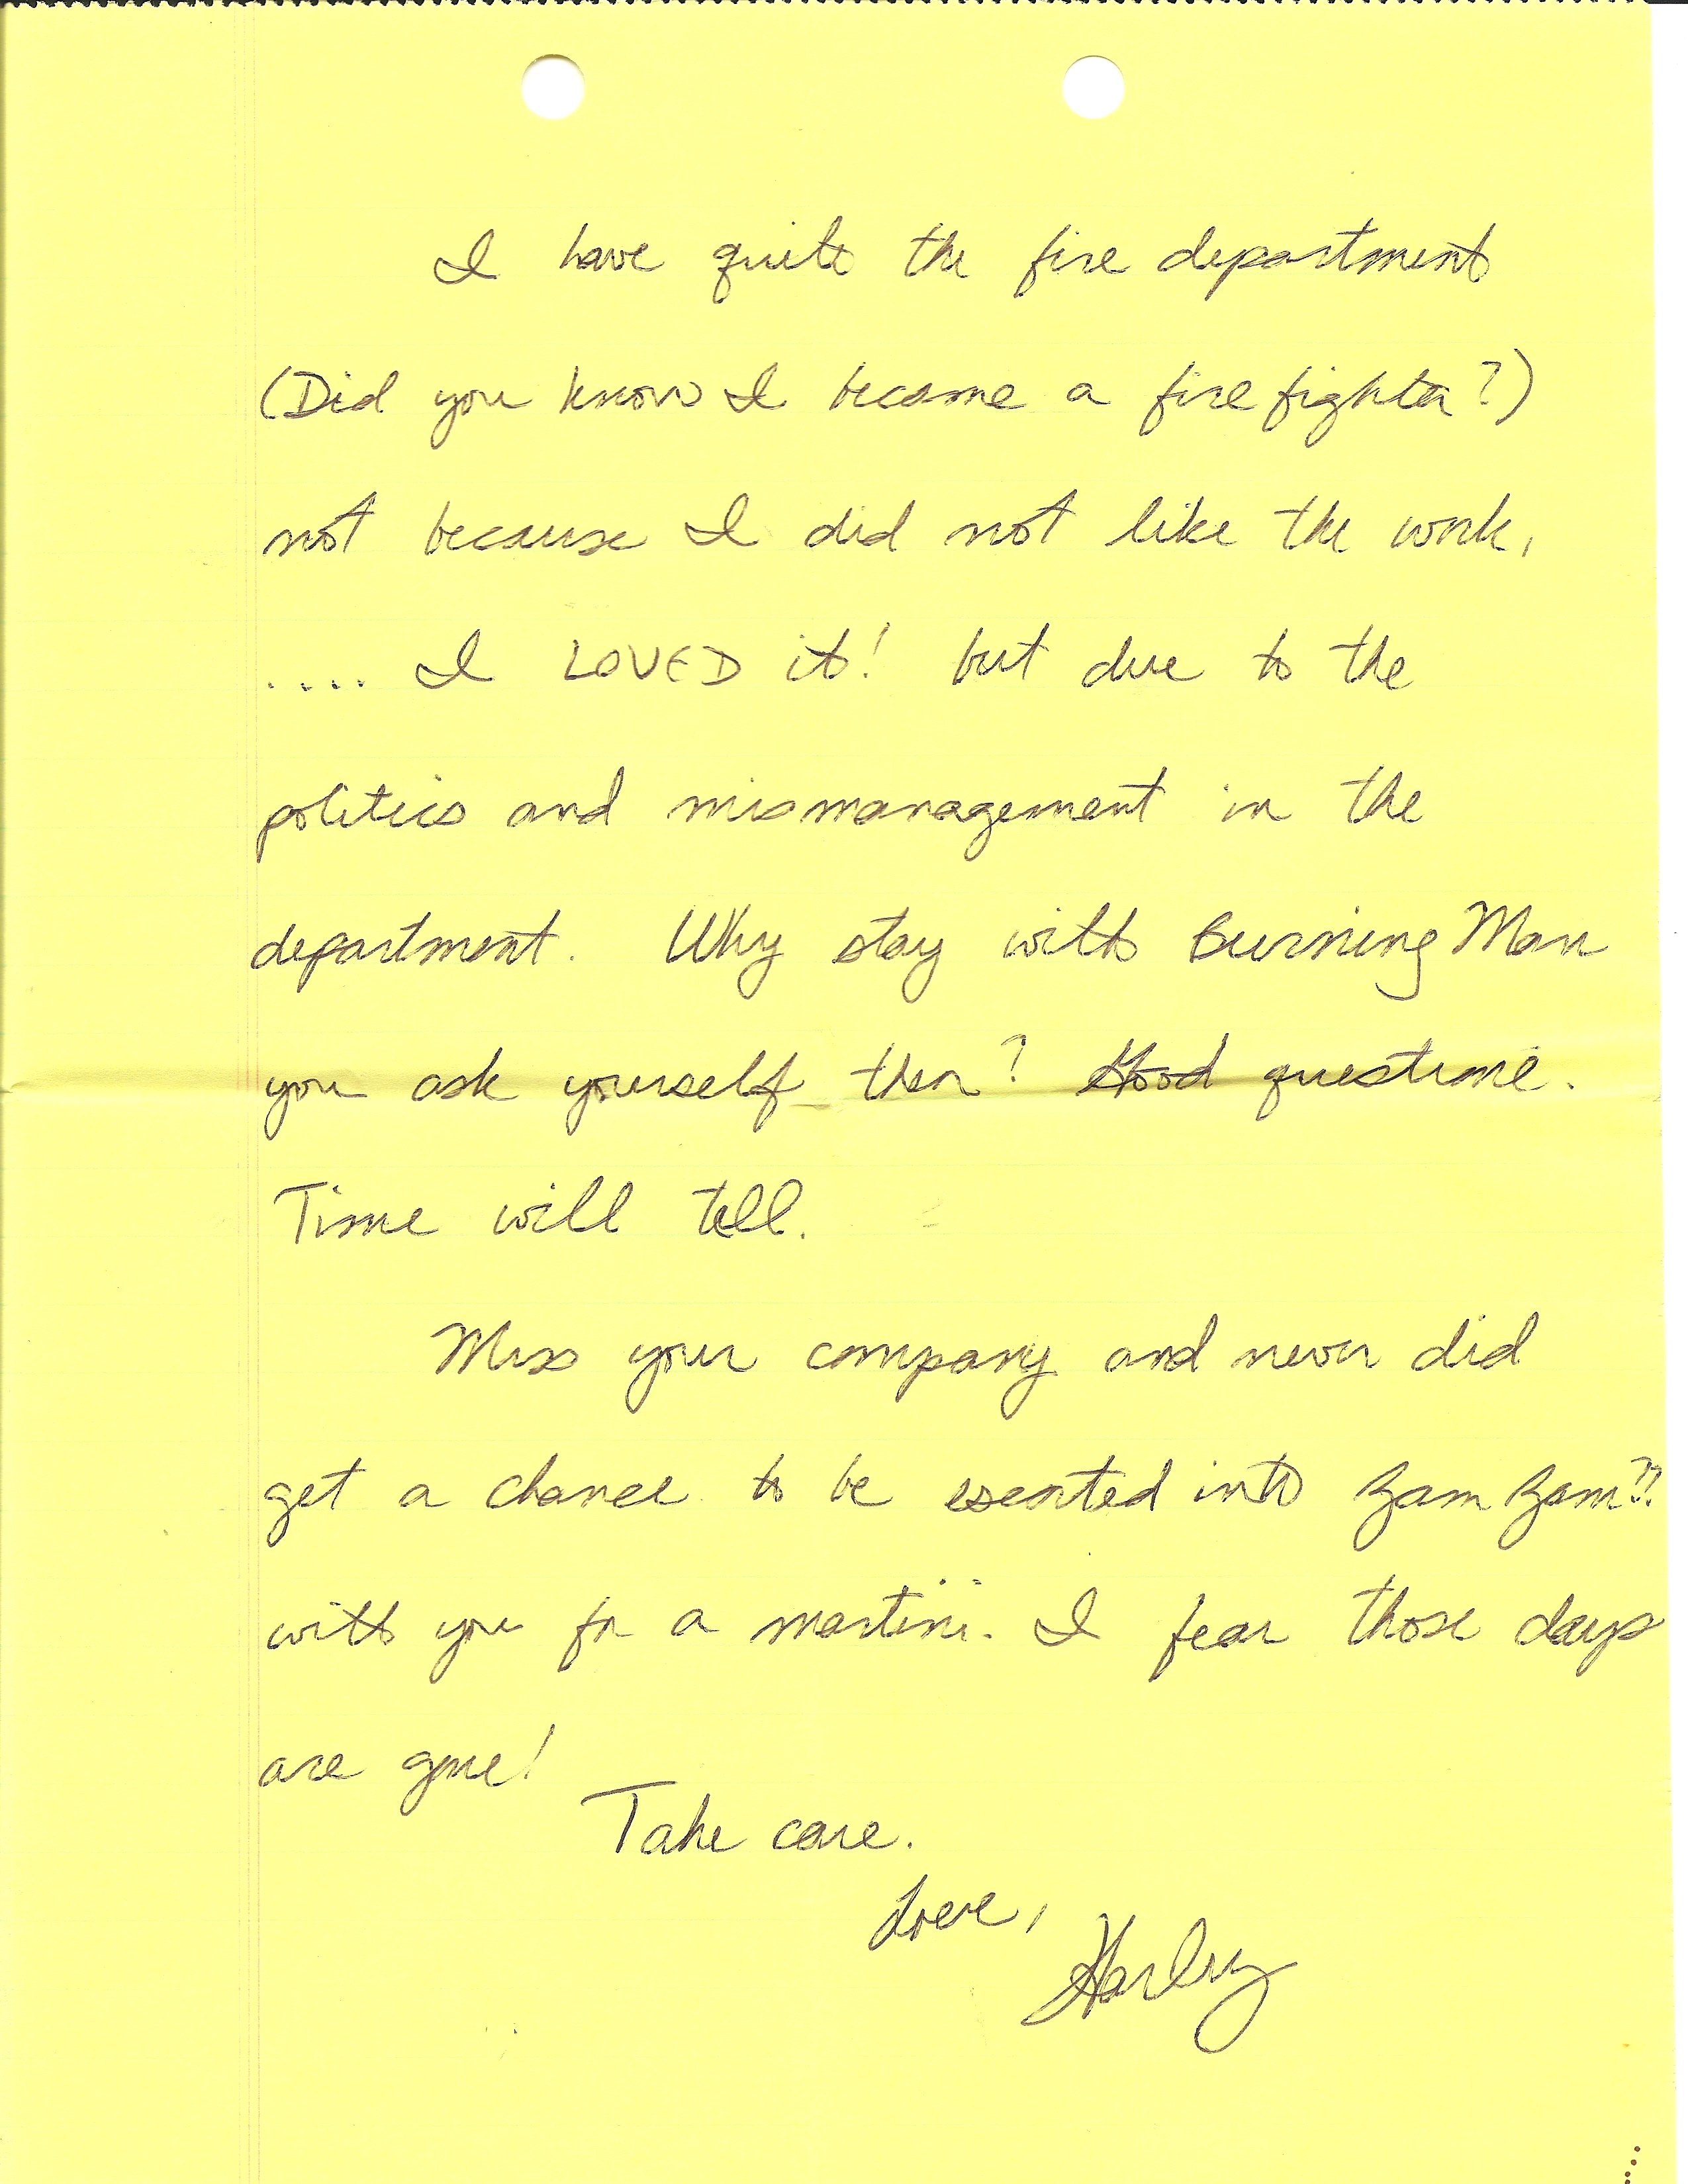 I have quite the fire department
(Did you know I became a fire fighter?)
not because I did not like the work,
.... I LOVED it! but due to the
politics and mismanagement in the
department. Why stay with Burning Man
you ask yourself then? Good questione.
Time will tell.
Miss your company and never did
get a chance to be escorted into Zam Zam??
with you for a martini. I fear those days
are gone!
Take care.
Love,
Harley